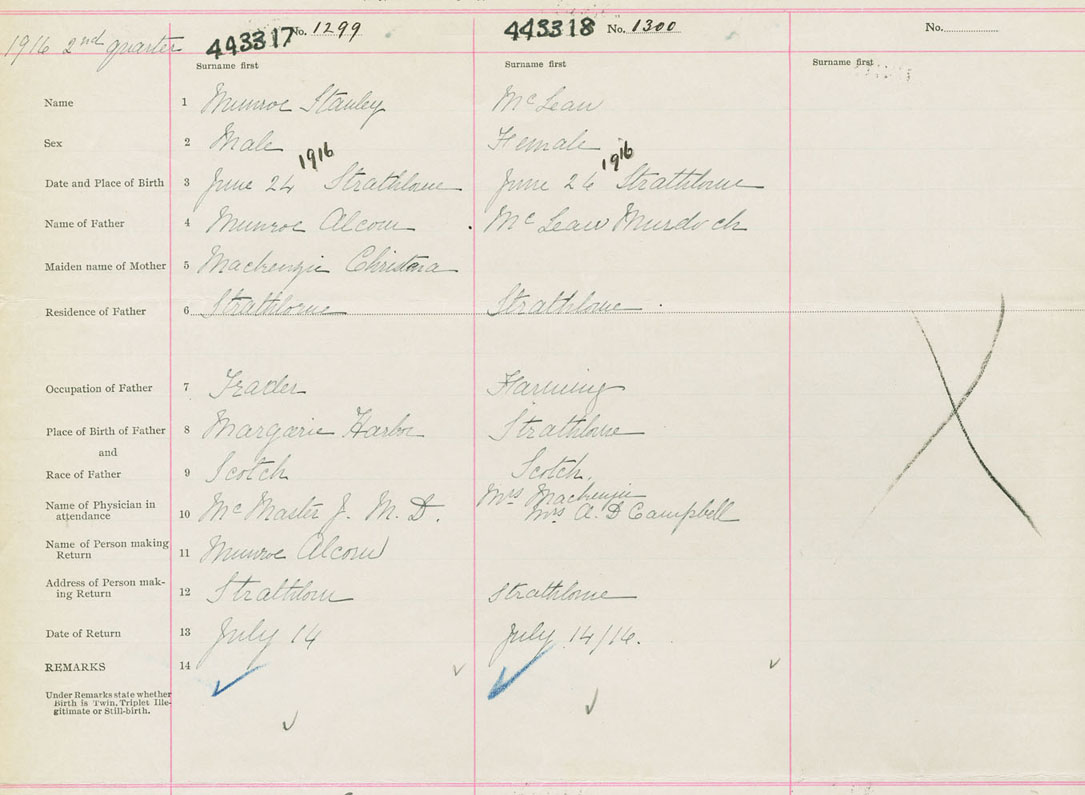 1916 2nd quarter
443317 No. 1299
443318 No. 1300
No.
Surname first
Surname first
Surname first
Name 1 Munroe Stanley McLean
Sex 2 Male Female
1916 1916
Date and Place of Birth 3 June 24 Strathlorne June 26 Strathlorne
Name of Father 4 Munroe Alcorn McLean Murdoch
Maiden name of Mother 5 Mackenzie Christena
Residence of Father 6 Strathlorne Strathlorne
Occupation of Father 7 Trader Farming
Place of Birth of Father 8 Margaree Harbor Strathlorne
and
Race of Father 9 Scotch Scotch.
Name of Physician in
attendance 10 McMaster J. M. D. Mrs Mackenzie
Mrs A. D Campbell
Name of Person making
Return 11 Munroe Alcorn
Address of Person mak-
ing Return 12 Strathlorn Strathlorne
Date of Return 13 July 14 July 14/16.
REMARKS 14
Under Remarks state whether
Birth is Twin, Triplet Ille-
gitimate or Still-birth.